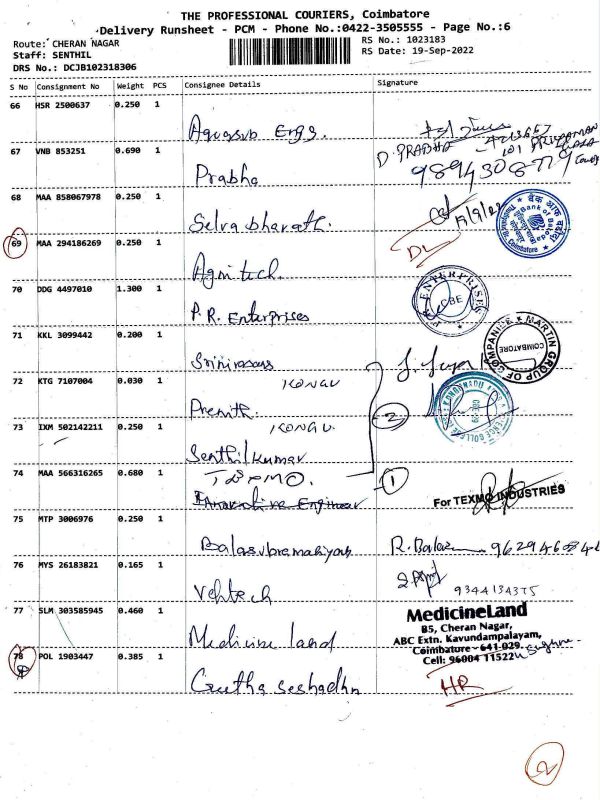 THE PROFESSIONAL COURIERS, Coimbatore
Delivery Runsheet - PCM - Phone No.:0422-3505555 - Page No.:6
Route: CHERAN NAGAR
Staff: SENTHIL
DRS No.: DCJB102318306
RS No.: 1023183
RS Date: 19-Sep-2022
S No Consignment No Weight PCS Consignee Details Signature
66 HSR 2500637 0.250 1
Aquasub Engg.
67 VNB 853251 0.690 1
Prabha
D. PRABHA
9894308779
68 MAA 858067978 0.250 1
Selvabharath.
19/9/22
बैंक ऑफ़ बड़ौदा
Bank of Baroda
Coimbatore
69 MAA 294186269 0.250 1
Agritech.
DL
70 DDG 4497010 1.300 1
P.R. Enterprises
P.R. ENTERPRISES
CBE
71 KKL 3099442 0.200 1
Srinivasans
MARTIN GROUP OF COMPANIES
COIMBATORE
72 KTG 7107004 0.030 1
KONGU
Prenith.
73 IXM 502142211 0.250 1
KONGU.
2
Senthil kumar
74 MAA 566316265 0.680 1
TEXMO.
1
Engineer
For TEXMO INDUSTRIES
75 MTP 3006976 0.250 1
Balasubramaniyam
R. Balas
76 MYS 26183821 0.165 1
Vehtech
9344134375
77 SLM 303585945 0.460 1
Medicine land
MedicineLand
B5, Cheran Nagar,
ABC Extn. Kavundampalayam,
Coimbatore - 641 029.
Cell: 96004 11522
78 POL 1903447 0.385 1
Geetha Seshadhri
HR
2